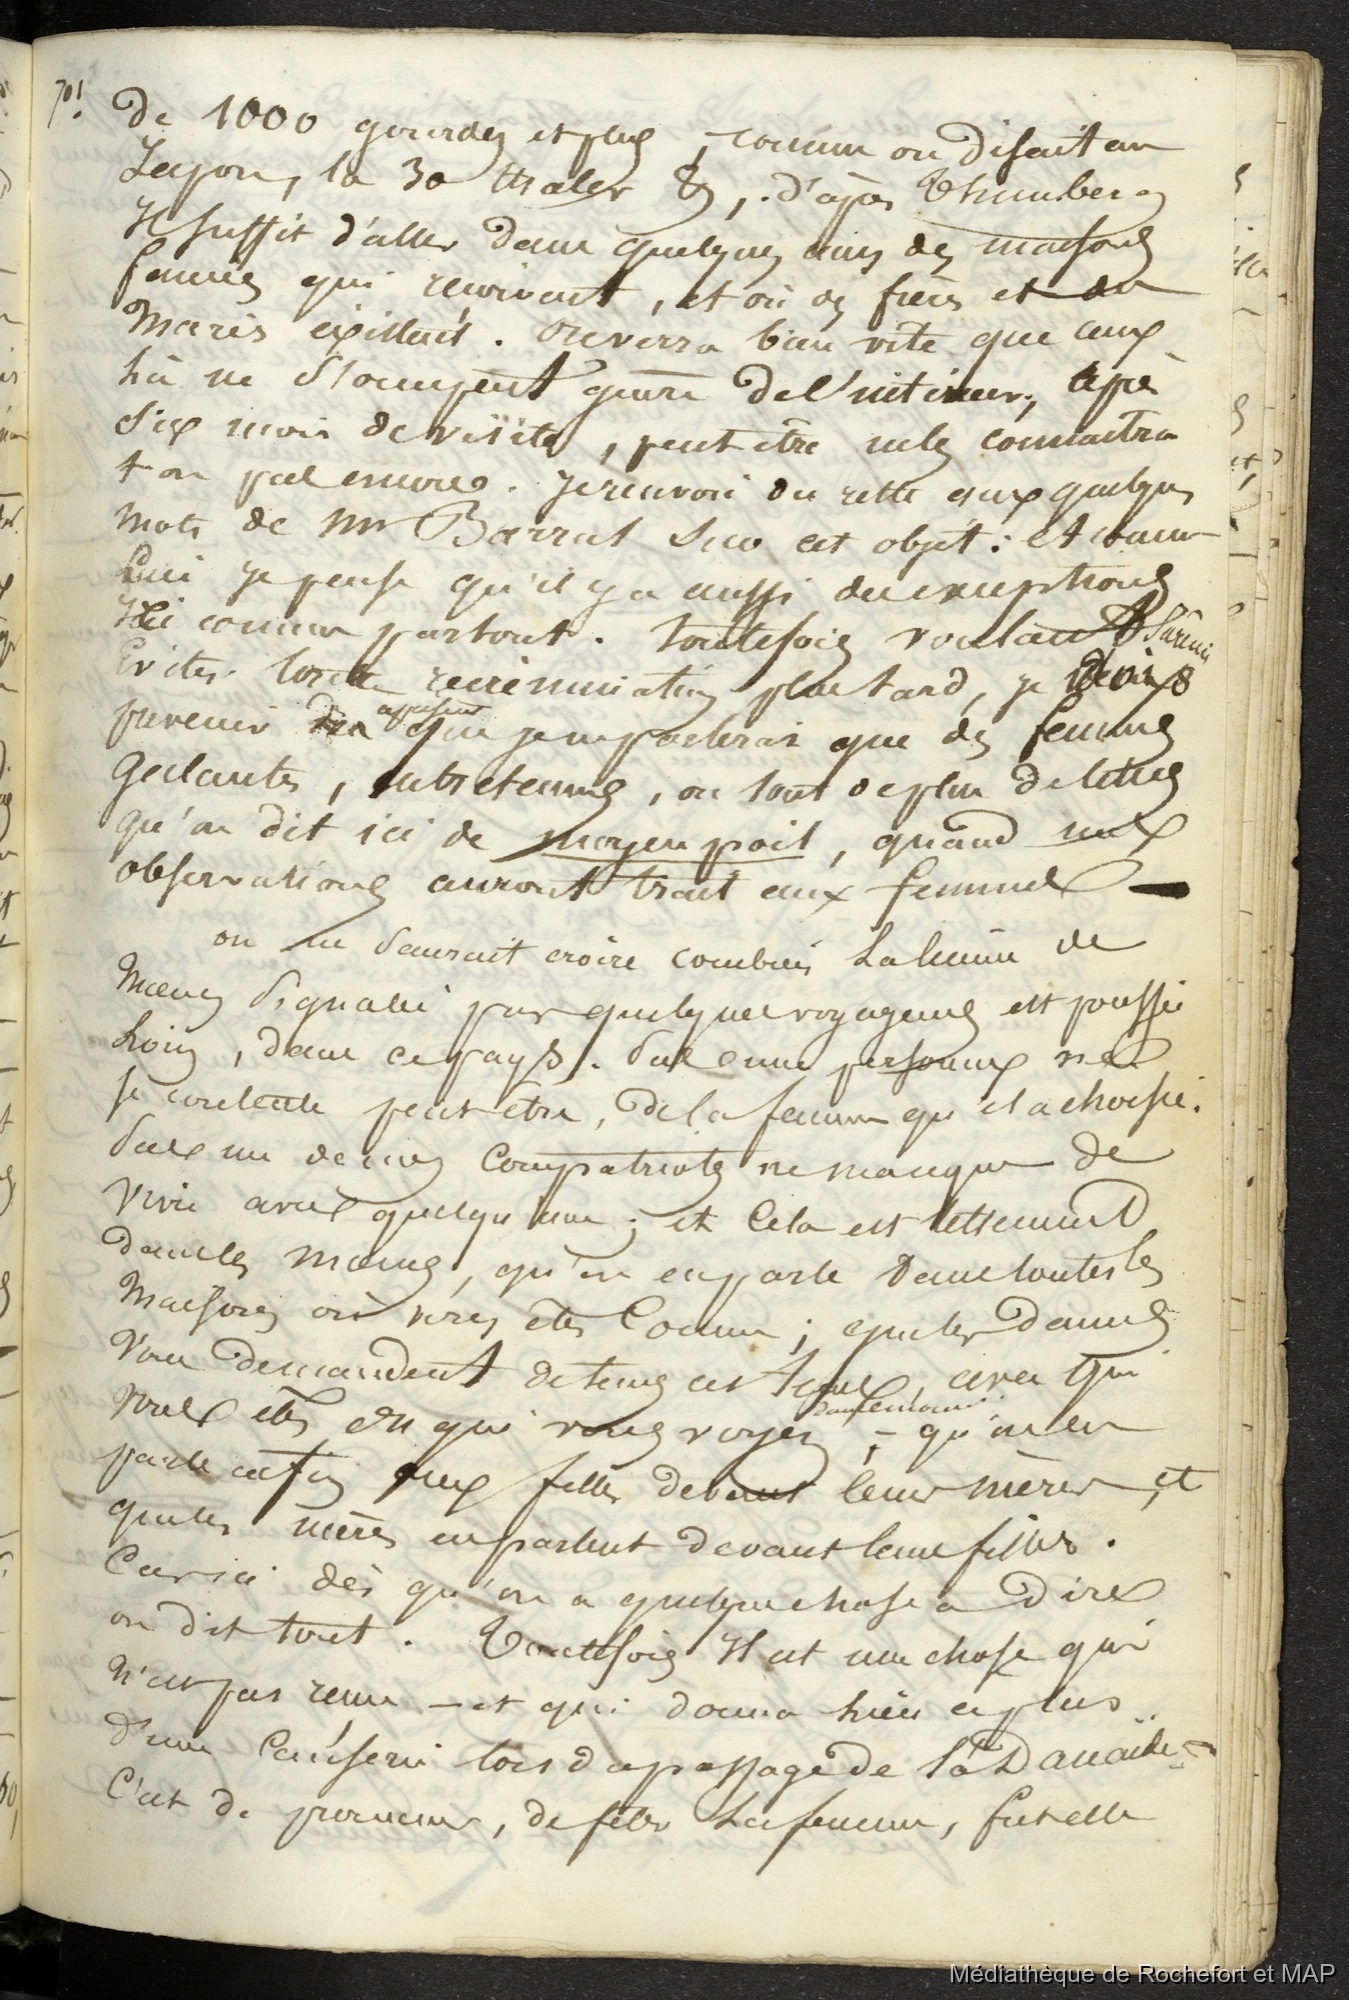 701
De 1000 gourdes et plus, comme on disait au
Japon, la 30 thaler &, d'après Thumberg
Il suffit d'aller dans quelques unes des maisons
famées qui reçoivent, et où des frères et des
Maris existent. On verra bien vite que ceux
là ne s'occupent guère de l'intérieur; après
six mois de visites, peut être ne les connaitra
t on pas encore. Je renvoie du reste aux quelques
mots de Mr Barral sur cet objet: et comme
lui je pense qu'il y a aussi des exceptions
Ici comme partout. Toutefois voulant
Eviter toute recrimination plus tard, je dois
prevenir que je ne parlerai que des femmes
Galantes, entretenues, ou tout de plus de celles
qu'on dit ici de moyen poil, quand mes
observations auront trait aux femmes —
on ne saurait croire combien la licence de
Mœurs signalée par quelques voyageurs est poussée
loin, dans ce pays. Pas une personne ne
se contente peut être, de la femme qu'il a choisie.
Pas un de mes Compatriotes ne manque de
Vivre avec quelqu'une; et Cela est tellement
dans les mœurs, qu'on en parle dans toutes les
Maisons où vous êtes Connu; que les dames
Vous demandent de temps en temps, avec qui
vous êtes, ou qui vous voyez; – qu'on en
parle enfin aux filles devant leurs mères, et
que les mères en parlent devant leurs filles.
Car ici dès qu'on a quelque chose à dire
on dit tout. Toutefois Il est une chose qui
N'est pas reçue – et qui donna lieu à plus
d'une Causerie lors du passage de la Danaïde –
C'est de promener, de fêter la femme, fut elle